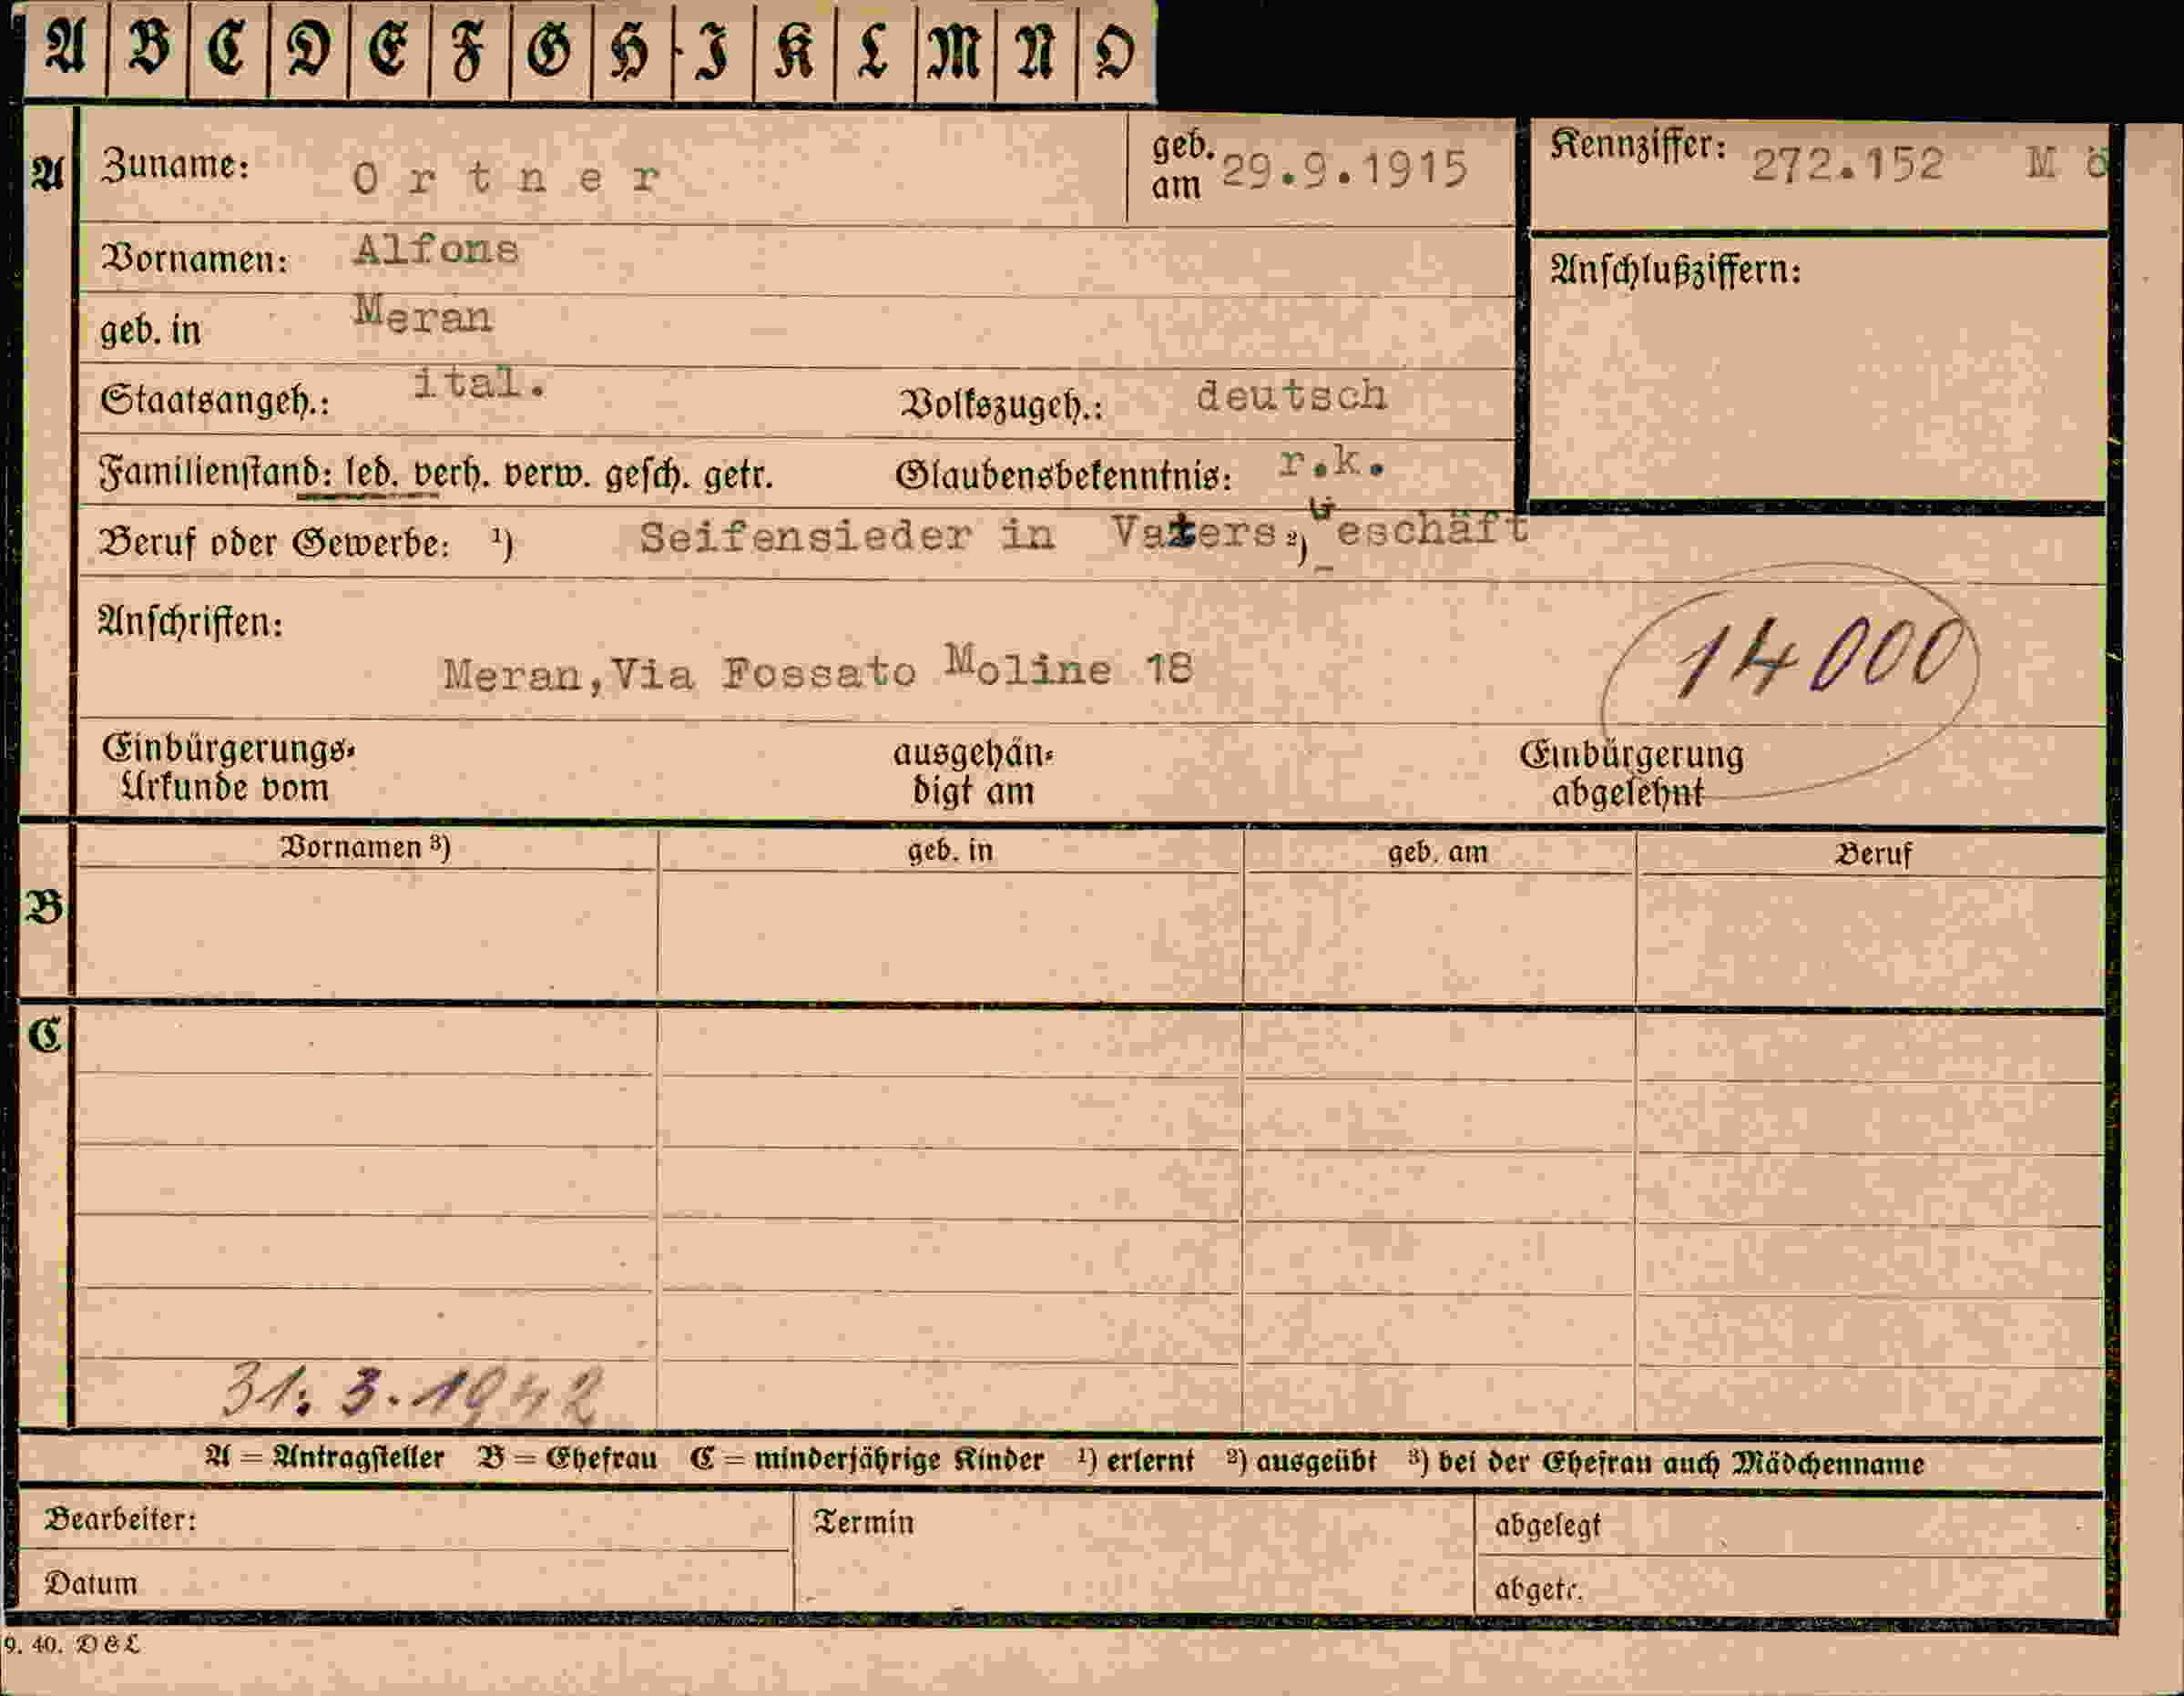 A B C D E F G H I K L M N O
A Zuname: Ortner geb. am 29.9.1915 Kennziffer: 272.152 M ö
Vornamen: Alfons Anschlußziffern:
geb. in Meran
Staatsangeh.: ital. Volkszugeh.: deutsch
Familienstand: led. verh. verw. gesch. getr. Glaubensbekenntnis: r.k.
Beruf oder Gewerbe: ¹) Seifensieder in Vaters ²) Geschäft
Anschriften:
14000
Meran, Via Fossato Moline 18
Einbürgerungs-
Urkunde vom
ausgehän-
digt am
Einbürgerung
abgelehnt
Vornamen ³) geb. in geb. am Beruf
B
C
31. 3. 1942
A = Antragsteller B = Ehefrau C = minderjährige Kinder ¹) erlernt ²) ausgeübt ³) bei der Ehefrau auch Mädchenname
Bearbeiter: Termin abgelegt
Datum abgetr.
9. 40. DEL